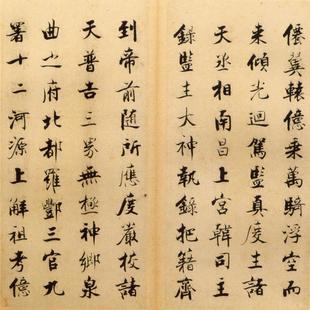 僊翼轅億乘萬騎浮空而
來傾光迴駕監真度生諸
天丞相南昌上宮韓司主
錄監生大神執錄把籍齊
到帝前隨所應度嚴校諸
天普告三界無極神鄉泉
曲之府北都羅酆三官九
署十二河源上解祖考億